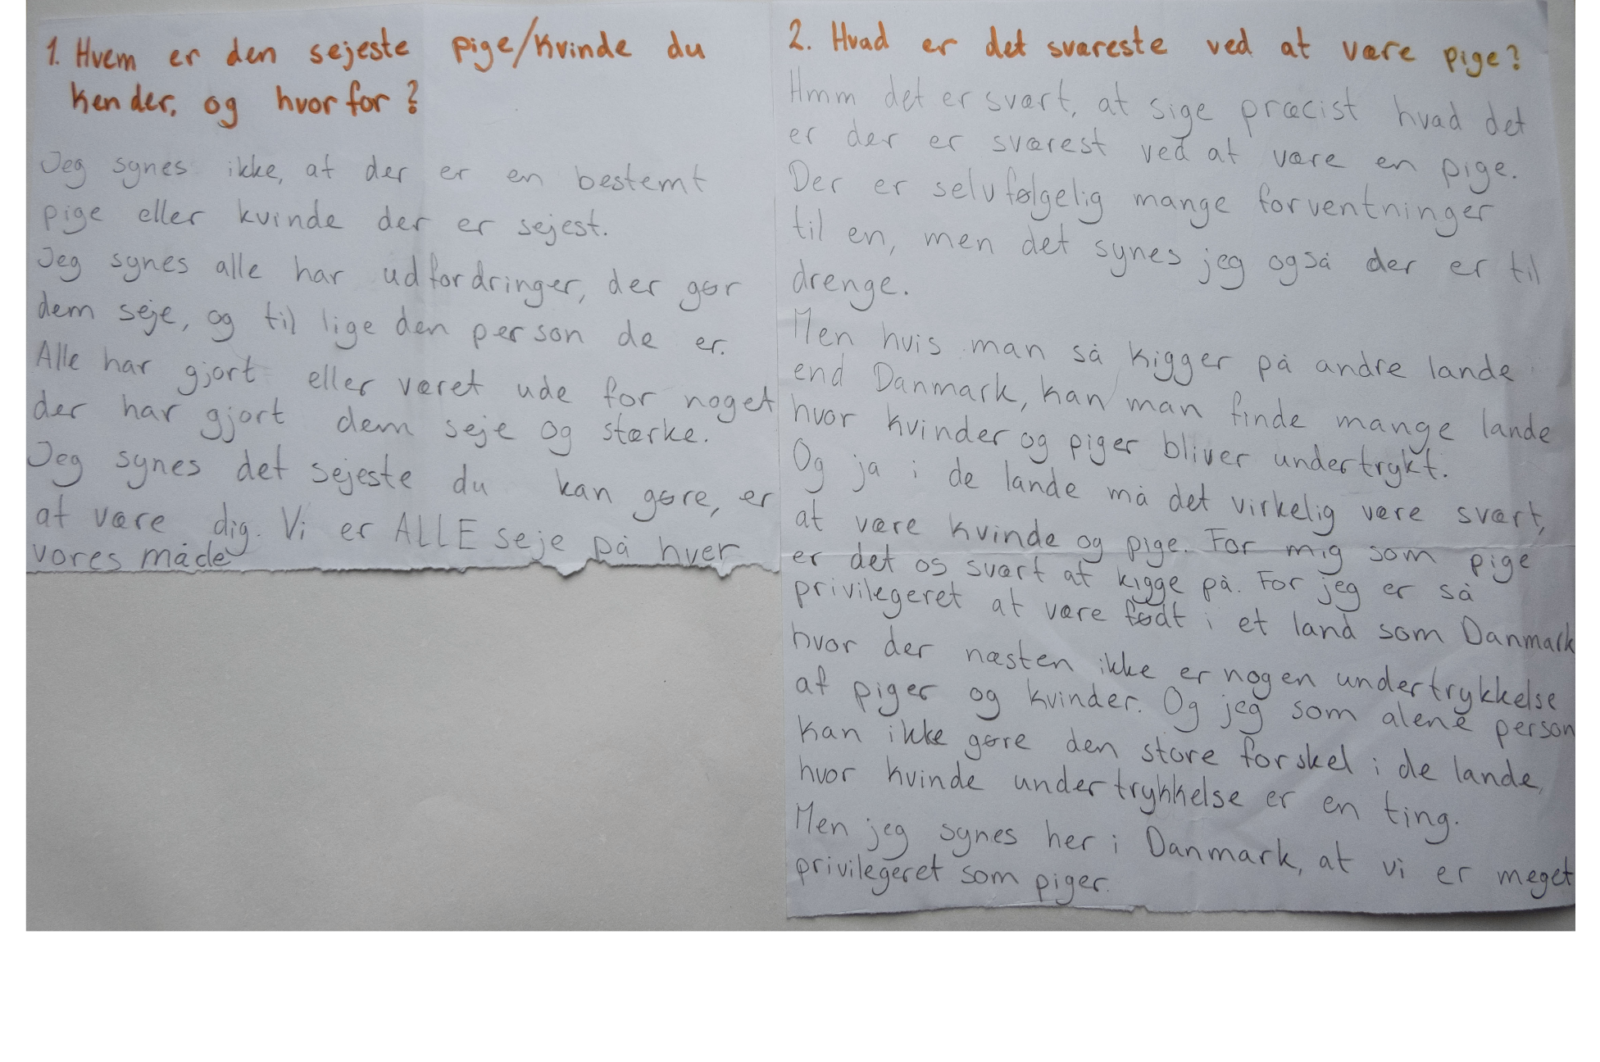 1. Hvem er den sejeste pige/kvinde du
kender, og hvorfor?
Jeg synes ikke, at der er en bestemt
pige eller kvinde der er sejest.
Jeg synes alle har udfordringer, der gør
dem seje, og til lige den person de er.
Alle har gjort eller været ude for noget
der har gjort dem seje og stærke.
Jeg synes det sejeste du kan gøre, er
at være dig. Vi er ALLE seje på hver
vores måde
2. Hvad er det sværeste ved at være pige?
Hmm det er svært, at sige præcist hvad det
er der er sværest ved at være en pige.
Der er selvfølgelig mange forventninger
til en, men det synes jeg også der er til
drenge.
Men hvis man så kigger på andre lande
end Danmark, kan man finde mange lande
hvor kvinder og piger bliver undertrykt.
Og ja i de lande må det virkelig være svært,
at være kvinde og pige. For mig som pige
er det os svært at kigge på. For jeg er så
privilegeret at være født i et land som Danmark
hvor der næsten ikke er nogen undertrykkelse
af piger og kvinder. Og jeg som alene person
kan ikke gøre den store forskel i de lande,
hvor kvinde undertrykkelse er en ting.
Men jeg synes her i Danmark, at vi er meget
privilegeret som piger.